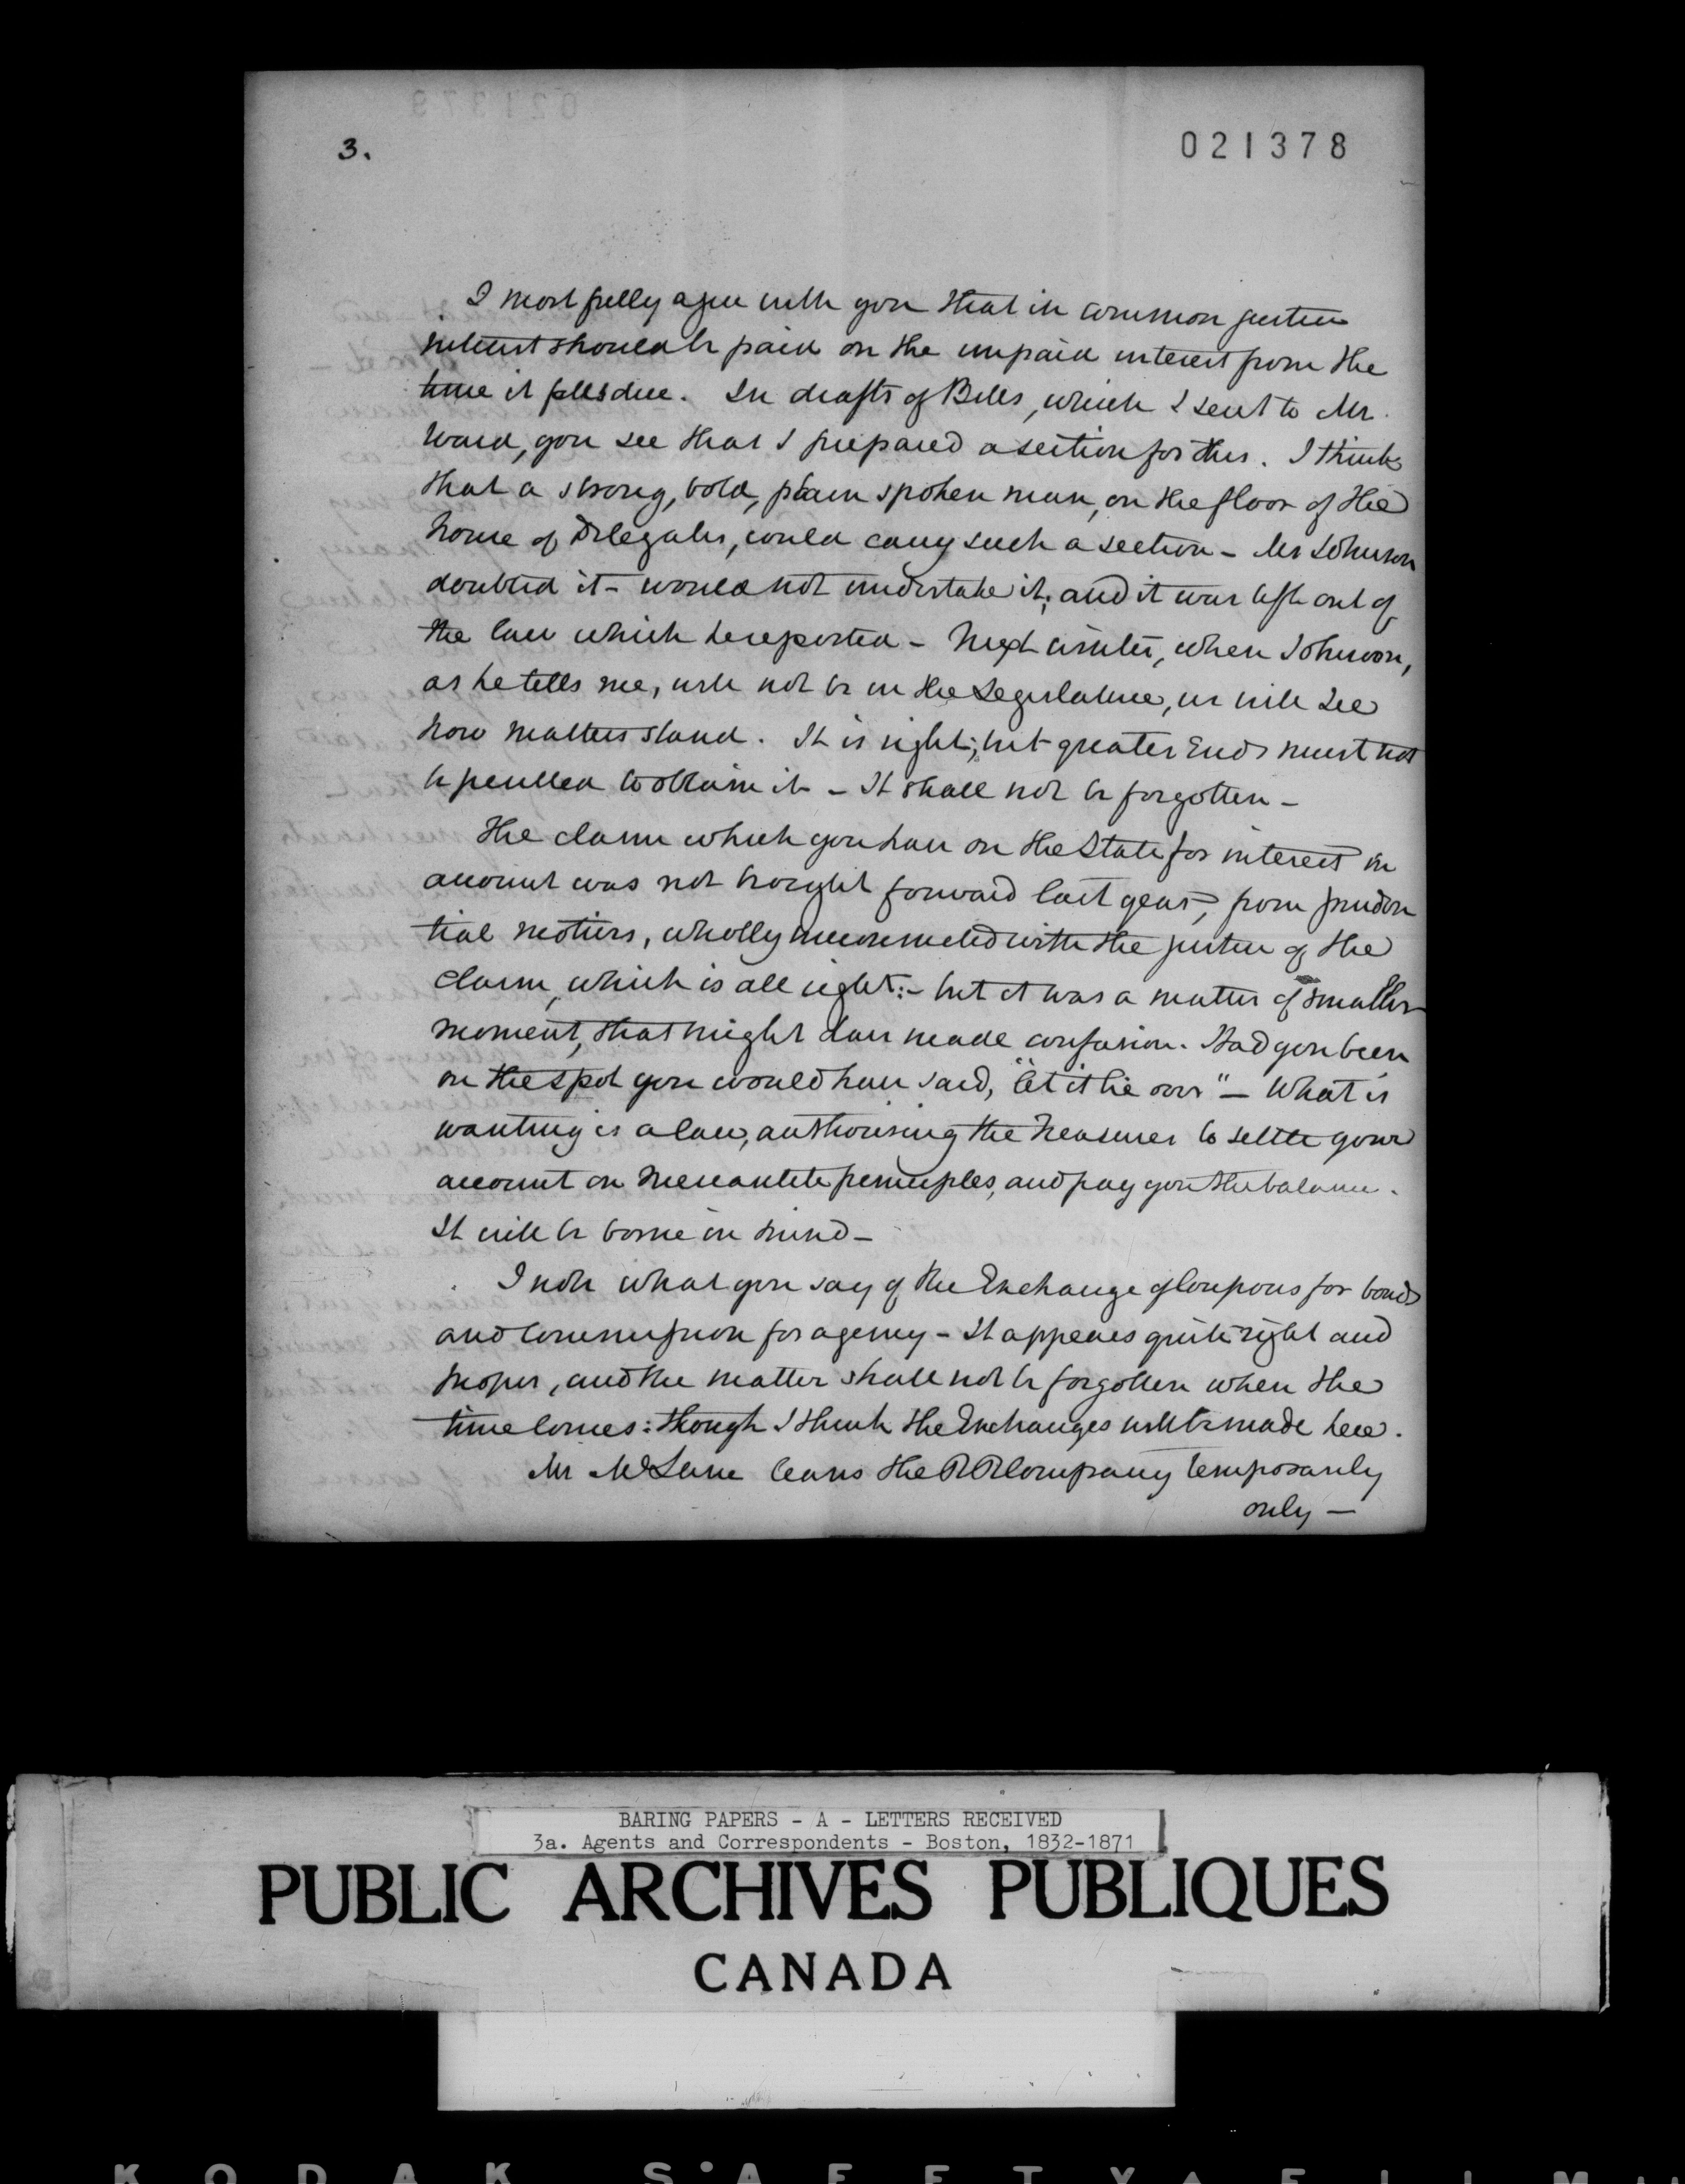 3.
021378
I most fully agree with you that in common justice
interest should be paid on the unpaid interest from the
time it falls due. In drafts of Bills, which I sent to Mr.
Ward, you see that I prepared a section for this. I think
that a strong, bold, plain spoken man, on the floor of the
House of Delegates, could carry such a section - Mr Johnson
doubted it - would not undertake it; and it was left out of
the law which he reported - Next winter, when Johnson,
as he tells me, will not be in the Legislature, we will see
how matters stand. It is right; but greater ends must not
be perilled to obtain it - It shall not be forgotten -
The claim which you have on the State for interest on
account was not brought forward last year, from pruden
tial motives, wholly unconnected with the justice of the
claim, which is all right: - but it was a matter of smaller
moment, that might have made confusion. Had you been
on the spot you would have said, "let it lie over" - What is
wanting is a law, authorising the Treasurer to settle your
account on mercantile principles, and pay you the balance.
It will be borne in mind -
I note what you say of the Exchange of Coupons for bonds
and Commission for agency - It appears quite right and
proper, and the matter shall not be forgotten when the
time comes: though I think the Exchanges will be made here.
Mr McLane leaves the RR Company temporarily
only -
BARING PAPERS - A - LETTERS RECEIVED
3a. Agents and Correspondents - Boston, 1832-1871
PUBLIC ARCHIVES PUBLIQUES
CANADA
KODAK SAFETY FILM